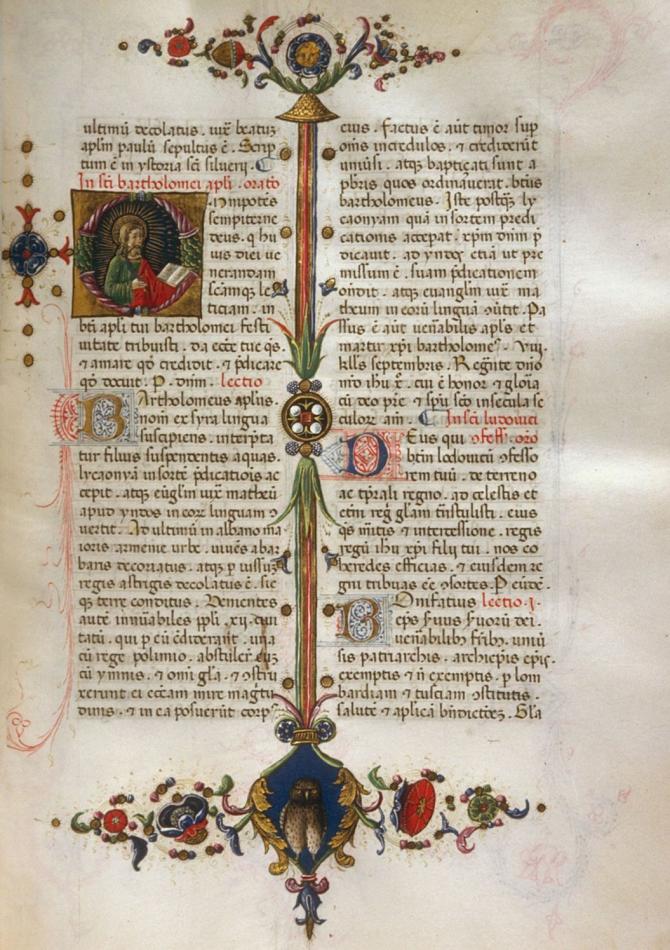 ultimū decolatus. uix̄ beatuz
apl̄m paulū sepultus ē. Scrip
tum ē in ystoria sc̄i silueri.
In sc̄i bartholomei apl̄i. orato
.mnipotēs
sempiterne
deus. q hu
ius diei ue
nerandam
scāmqȝ le
ticiam. in
bt̄i apl̄i tui bartholomei festi
uitate tribuisti. da ecc̄e tue qs̄.
⁊ amare qd̄ credidit. ⁊ p̄dicare
qd̄ docuit. P. dnm̄. lectio
BArtholomeus apl̄us.
nom̄ ex syra lingua
suscipiens. interp̄ta
tur filius suspendentis aquas.
lycaonȳa in sortē p̄dicatiōis ac
cepit. atqȝ eūgl̄m uix̄ matheū
apud yndos in eoꝝ linguam ɔ
uertit. Ad ultimū in albano ma
ioris armenie urbe. uiuēs a bar
baris decoriatus. atqȝ p iussuȝ
regis astrigis decolatus ē. sic
qȝ terre conditus. Uenientes
autē inn̄uabiles ppl̄i .xij. ciui
tatū. qui p eū c̄diderant. una
cū rege polimio. abstuler̄ eūȝ
cū ymnis. ⁊ omī gl̄a. ⁊ ɔstru
xerunt ei eccam mire magn̄tu
dinis. ⁊ in ea posuerūt corpꝰ
eius. Factus ē aūt timor sup
omīs incredulos. ⁊ crediderūt
uniūsi. atqȝ baptiçati sunt a
pb̄ris quos ordinauerat. bt̄us
bartholomeus. Iste postqȝ ly
caonyam quā in sortem predi
cationis accepat. xp̄m dn̄m p̄
dicauit. ad yndos etiā ut pre
missum ē. suam p̄dicationem
ɔndit. atqȝ euangl̄m uix̄ ma
theum in eorū linguā ɔūtit. Pa
ssus ē aūt uen̄abilis apl̄s et
martir xp̄i bartholomeꝰ. Viij.
kl̄ls septembris. Regn̄te dn̄o
nr̄o ih̄u x̄. cui ē honor ⁊ gl̄oia
cū deo pr̄e ⁊ sp̄u sc̄o in secula se
culoꝝ am̄. In sc̄i ludouici
DEus qui ɔfess. oro
bt̄m lodouicū ɔfesso
rem tuū. de terreno
ac tp̄rali regno. ad celestis et
et̄ni reg̃ gl̄am t̄nstulisti. eius
qs̄ mitis ⁊ intercessione. regis
regū ih̄u xp̄i filij tui. nos co
heredes efficias. ⁊ eiusdem re
gni tribuas eē ɔsortes. P eūde.
BOnifatius lectio .j.
ep̄s ẜuus ẜuorū dei.
uen̄abilibȝ fr̄ibȝ. uniū
sis patriarchis. archiep̄is ep̄is.
exemptis ⁊ n̄ exemptis. p lom
bardiam ⁊ tusciam ɔstitutis.
salutē ⁊ apl̄icā bn̄dictōeȝ. Gl̄a